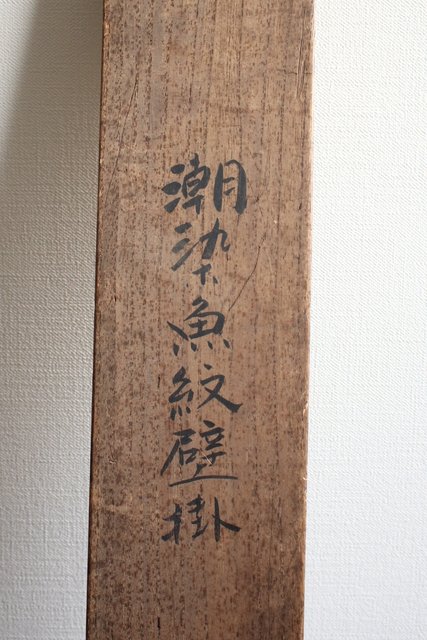 潮染魚紋壁掛